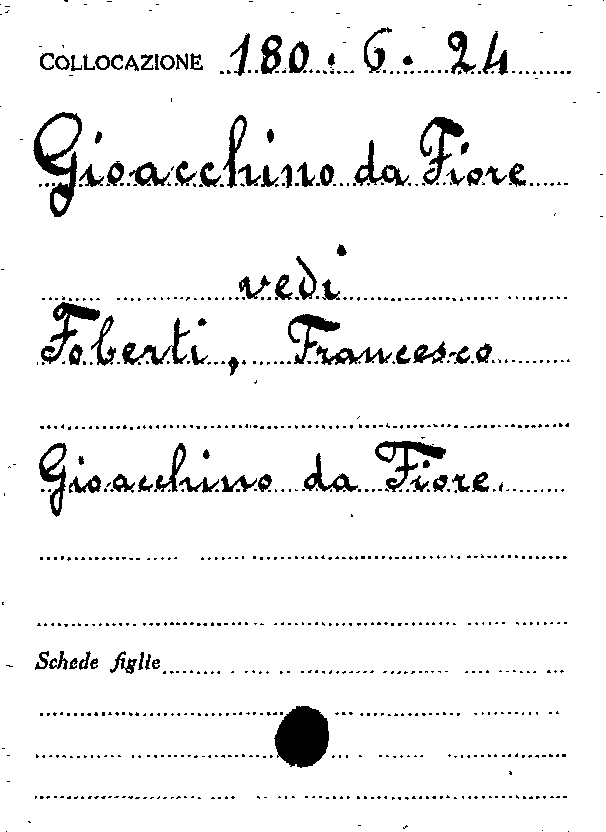 COLLOCAZIONE 180.6.24
Gioacchino da Fiore
vedi
Foberti, Francesco
Gioacchino da Fiore.
Schede figlie